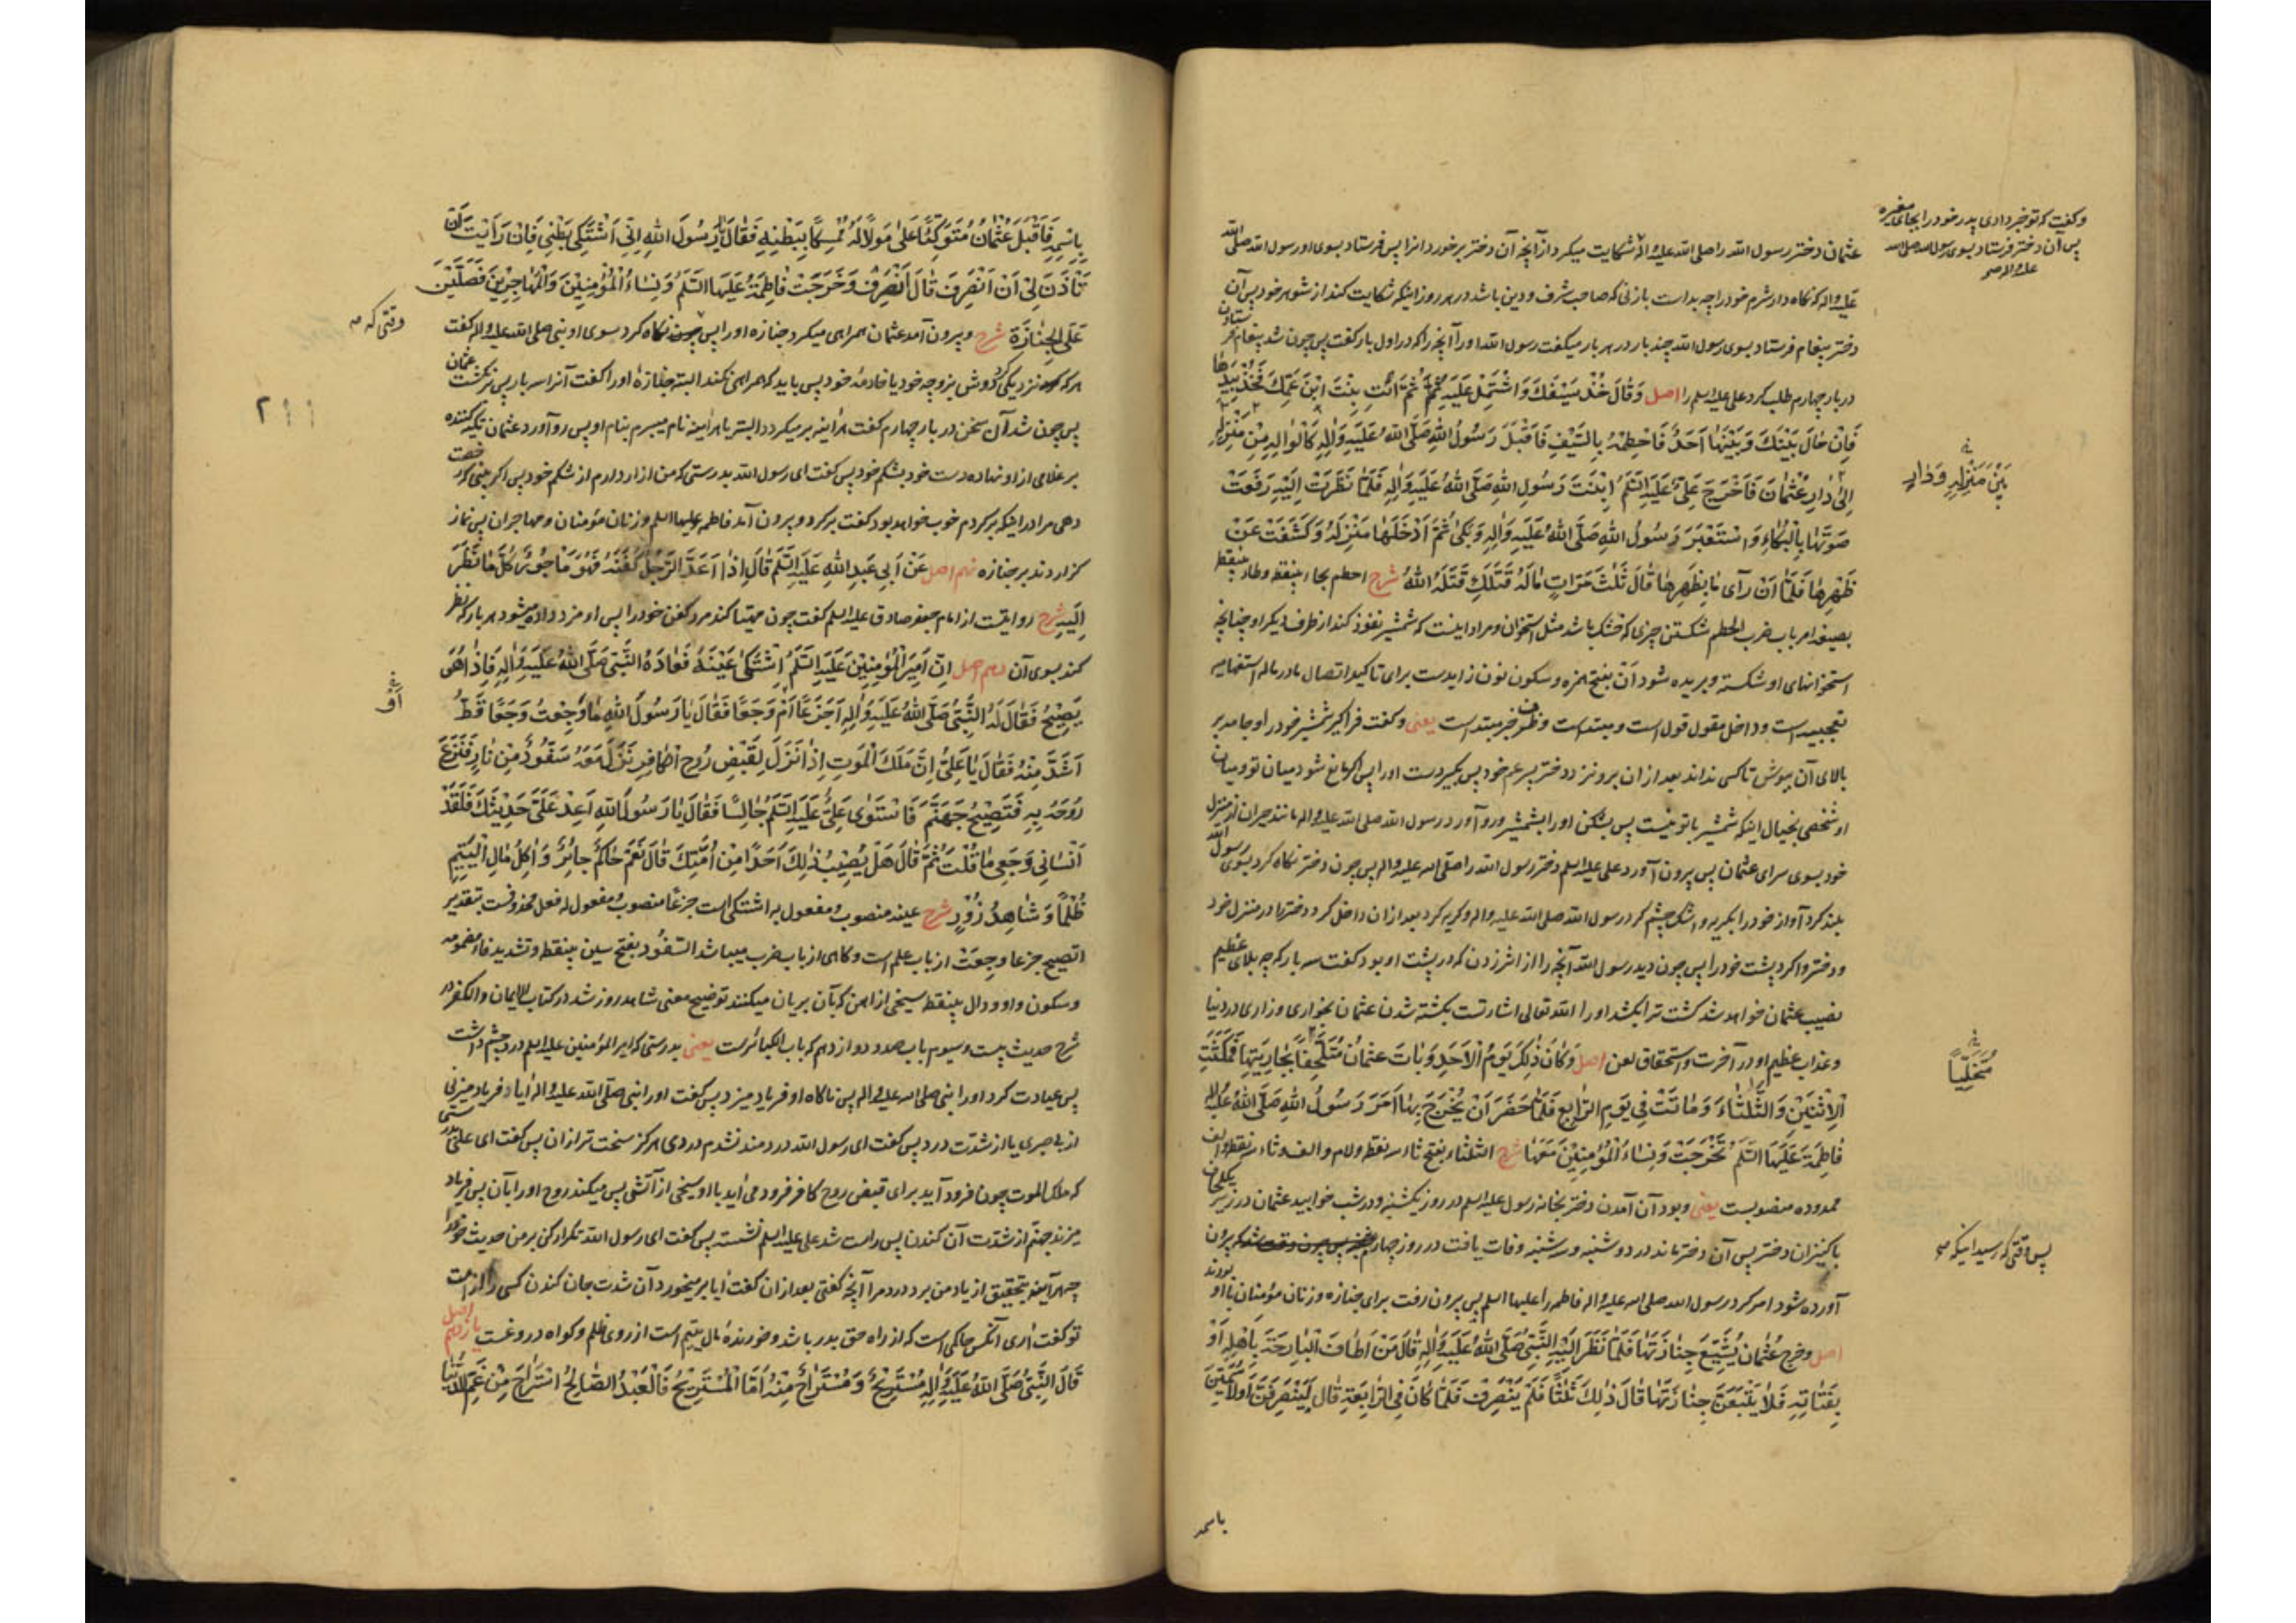 عثمان دختر رسول الله را صلی الله علیه و آله شکایت میکرد از آنچه آن دختر برخورد از او پس فرستاد بسوی او رسول الله صلی الله
علیه و اله که نگاه دار شرم خود را چه بد است با زنی که صاحب شرف و دین باشد در هر روز اینکه شکایت کند از شوهر خود پس آن
دختر پیغام فرستاد بسوی رسول الله چند بار در هر بار میکفت رسول الله او را آنچه را که در اول بار کفت پس چون شد پیغام
در بار چهارم طلب کرد علی علیه السلم را اصل وَقَالَ خُذْ سَيْفَكَ وَاشْتَمِلْ عَلَيْهِ ثُمَّ ائْتِ بِنْتَ ابْنِ عَمِّكَ فَخُذْ بِيَدِهَا
فَإِنْ حَالَ بَيْنَكَ وَبَيْنَهَا أَحَدٌ فَاحْطِمْهُ بِالسَّيْفِ فَأَقْبَلَ رَسُولُ اللهِ صَلَّى اللهُ عَلَيْهِ وَآلِهِ كَالْوَالِهِ مِنْ مَنْزِلِهِ
إِلَى دَارِ عُثْمَانَ فَأَخْرَجَ عَلِيٌّ عَلَيْهِ السَّلَمُ ابْنَتَ رَسُولِ اللهِ صَلَّى اللهُ عَلَيْهِ وَآلِهِ فَلَمَّا نَظَرَتْ إِلَيْهِ رَفَعَتْ
صَوْتَهَا بِالْبُكَاءِ وَاسْتَعْبَرَ رَسُولُ اللهِ صَلَّى اللهُ عَلَيْهِ وَآلِهِ وَبَكَى ثُمَّ أَدْخَلَهَا مَنْزِلَهُ وَكَشَفَتْ عَنْ
ظَهْرِهَا فَلَمَّا أَنْ رَأَى مَا بِظَهْرِهَا قَالَ ثَلَثَ مَرَّاتٍ مَا لَهُ قَتَلَكِ قَتَلَهُ اللهُ شرح احطم بحاء بینقطه و طاء بینقطه
بصیغه امر باب ضرب الحطم شکستن چیزی که خشک باشد مثل استخوان و مراد اینست که شمشیر نفوذ کند از طرف دیکر او چنانچه
استخوانهای او شکسته و بریده شود اَنْ بفتح همزه و سکون نون زایدست برای تاکید اتصال ما در ماله استفهامیه
تعجبیه است و داخل مقول قول است و مبتداست و ظرف خبر مبتداست یعنی و کفت فراکیر شمشیر خود را و جامه بر
بالای آن بپوش تا کسی نداند بعد از ان برو نزد دختر پسر عم خود پس بگیر دست او را پس اگر مانع شود میان تو و میان
او شخصی بخیال اینکه شمشیر با تو نیست پس بشکن او را بشمشیر و رو آورد رسول الله صلی الله علیه و اله مانند حیران از منزل
خود بسوی سرای عثمان پس بیرون آورد علی علیه السلم دختر رسول الله را صلی الله علیه و اله پس چون دختر نگاه کرد بسوی رسول الله
بلند کرد آواز خود را بکریه و اشک چشم کرد رسول الله صلی الله علیه و اله و کریه کرد بعد از ان داخل کرد دختر را در منزل خود
و دختر وا کرد پشت خود را پس چون دید رسول الله آنچه را از اثر زدن که در پشت او بود کفت سه بار که چه بلای عظیم
نصیب عثمان خواهد شد کشت ترا بکشد او را الله تعالی اشارتست بکشته شدن عثمان بخواری و زاری در دنیا
و عذاب عظیم او در آخرت و استحقاق لعن اصل وَكَانَ ذَلِكَ يَوْمَ الْأَحَدِ وَبَاتَ عُثْمَانُ مُتَلَحِّفًا بِجَارِيَتِهَا فَمَكَثَتِ
الْإِثْنَيْنِ وَالثَّلَثَاءَ وَمَاتَتْ فِي يَوْمِ الرَّابِعِ فَلَمَّا حَضَرَ أَنْ يُخْرَجَ بِهَا أَمَرَ رَسُولُ اللهِ صَلَّى اللهُ عَلَيْهِ وَآلِهِ
فَاطِمَةَ عَلَيْهَا السَّلَمُ فَخَرَجَتْ وَنِسَاءُ الْمُؤْمِنِينَ مَعَهَا شرح الثلثاء بفتح ثاء سه نقطه و لام و الف و ثاء سه نقطه و الف
ممدوده منصوبست یعنی و بود آن آمدن دختر بخانه رسول علیه السلم در روز یکشنبه و در شب خوابید عثمان در زیر یک لحاف
با کنیزان دختر پس آن دختر ماند در دوشنبه و سه شنبه و وفات یافت در روز چهارم بیرون
آورده شود امر کرد رسول الله صلی الله علیه و اله فاطمه را علیها السلم پس بیرون رفت برای جنازه و زنان مؤمنان با او بودند
اصل وخرج عُثْمَانُ يُشَيِّعُ جِنَازَتَهَا فَلَمَّا نَظَرَ إِلَيْهِ النَّبِيُّ صَلَّى اللهُ عَلَيْهِ وَآلِهِ قَالَ مَنْ أَطَافَ الْبَارِحَةَ بِأَهْلِهِ أَوْ
بِفَتَاتِهِ فَلَا يَتْبَعَنَّ جِنَازَتَهَا قَالَ ذَلِكَ ثَلَثًا فَلَمْ يَنْصَرِفْ فَلَمَّا كَانَ فِي الرَّابِعَةِ قَالَ لَيَنْصَرِفَنَّ أَوْ لَأُسَمِّيَنَّ
باسمه
و کفت که تو خبر دادی پدر خود را بجای مغیره
پس آن دختر فرستاد بسوی رسول الله صلی الله
علیه و اله
بَيْنَ مَنْزِلِهِ وَدَارِ
مُتَخَلِّيًا
پس وقتی که رسید اینکه
بِاسْمِهِ فَأَقْبَلَ عُثْمَانُ مُتَوَكِّئًا عَلَى مَوْلًا لَهُ مُمْسِكًا بِبَطْنِهِ فَقَالَ يَا رَسُولَ اللهِ إِنِّي أَشْتَكِي بَطْنِي فَإِنْ رَأَيْتَ أَنْ
تَأْذَنَ لِي أَنْ أَنْصَرِفَ قَالَ انْصَرِفْ وَخَرَجَتْ فَاطِمَةُ عَلَيْهَا السَّلَمُ وَنِسَاءُ الْمُؤْمِنِينَ وَالْمُهَاجِرِينَ فَصَلَّيْنَ
عَلَى الْجِنَازَةِ شرح و بیرون آمد عثمان همراهی میکرد جنازه او را پس نگاه کرد سوی او نبی صلی الله علیه و اله کفت
هر که نزدیکی کرد دوش بزوجه خود یا خادمه خود پس باید که همراهی نکند البته جنازه او را کفت آنرا سه بار پس برنکشت عثمان
پس چون شد آن سخن در بار چهارم کفت هراینه برمیکردد البته یا هراینه نام میبرم بنام او پس رو آورد عثمان تکیه کننده
بر غلامی از او نهاده دست خود بشکم خود پس کفت ای رسول الله بدرستی که من ازار دارم از شکم خود پس اکر بینی که رخصت
دهی مرا در اینکه برکردم خوب خواهد بود کفت برکرد و بیرون آمد فاطمه علیها السلم و زنان مؤمنان و مهاجران پس نماز
کزاردند بر جنازه نهم اصل عَنْ أَبِي عَبْدِ اللهِ عَلَيْهِ السَّلَمُ قَالَ إِذَا أَعَدَّ الرَّجُلُ كَفَنَهُ فَهُوَ مَأْجُورٌ كُلَّ مَا نَظَرَ
إِلَيْهِ شرح روایتست از امام جعفر صادق علیه السلم کفت چون مهیا کند مرد کفن خود را پس او مزد داده میشود هر بار که نظر
کند بسوی آن دهم اصل إِنَّ أَمِيرَ الْمُؤْمِنِينَ عَلَيْهِ السَّلَمُ اشْتَكَى عَيْنَهُ فَعَادَهُ النَّبِيُّ صَلَّى اللهُ عَلَيْهِ وَآلِهِ فَإِذَا هُوَ
يَصِيحُ فَقَالَ لَهُ النَّبِيُّ صَلَّى اللهُ عَلَيْهِ وَآلِهِ أَجَزَعًا أَمْ وَجَعًا فَقَالَ يَا رَسُولَ اللهِ مَا وَجِعْتُ وَجَعًا قَطُّ
أَشَدَّ مِنْهُ فَقَالَ يَا عَلِيُّ إِنَّ مَلَكَ الْمَوْتِ إِذَا نَزَلَ لِقَبْضِ رُوحِ الْكَافِرِ نَزَلَ مَعَهُ سَفُّودٌ مِنْ نَارٍ فَنَزَعَ
رُوحَهُ بِهِ فَتَصِيحُ جَهَنَّمُ فَاسْتَوَى عَلِيٌّ عَلَيْهِ السَّلَمُ جَالِسًا فَقَالَ يَا رَسُولَ اللهِ أَعِدْ عَلَيَّ حَدِيثَكَ فَلَقَدْ
أَنْسَانِي وَجَعِي مَا قُلْتَ ثُمَّ قَالَ هَلْ يُصِيبُ ذَلِكَ أَحَدًا مِنْ أُمَّتِكَ قَالَ نَعَمْ حَاكِمٌ جَائِرٌ وَآكِلُ مَالِ الْيَتِيمِ
ظُلْمًا وَشَاهِدُ زُورٍ شرح عینه منصوب و مفعول به اشتکی است جزعا منصوب و مفعول له فعل محذوفست بتقدیر
اتصیح جزعا وجعت از باب علم است و کاهی از باب ضرب میباشد السفود بفتح سین بینقطه و تشدید فاء مضمومه
و سکون واو و دال بینقطه سیخی از آهن که بآن بریان میکنند توضیح معنی شاهد زور شد در کتاب الایمان والکفر در
شرح حدیث بیست و سیوم باب صد و دوازدهم که باب الکبائرست یعنی بدرستی که امیر المؤمنین علیه السلم درد چشم داشت
پس عیادت کرد او را نبی صلی الله علیه و اله پس ناگاه او فریاد میزد پس کفت او را نبی صلی الله علیه و اله آیا فریاد میزنی
از بی صبری یا از شدّت درد پس کفت ای رسول الله دردمند نشدم دردی هرکز سخت تر از ان پس کفت ای علی بدرستی
که ملک الموت چون فرود آید برای قبض روح کافر فرود می آید با او سیخی از آتش پس میکند روح او را بآن پس فریاد
میزند جهنم از شدّت آن کندن پس راست شد علی علیه السلم نشسته پس کفت ای رسول الله تکرار کن بر من حدیث خود را
چه هرآینه بتحقیق از یاد من برد درد مرا آنچه کفتی بعد از ان کفت آیا بر میخورد آن شدت جان کندن کسی را از امت
تو کفت آری آنکس حاکمی است که از راه حق بدر باشد و خورنده مال یتیم است از روی ظلم و کواه دروغست یازدهم اصل
قَالَ النَّبِيُّ صَلَّى اللهُ عَلَيْهِ وَآلِهِ مُسْتَرِيحٌ وَمُسْتَرَاحٌ مِنْهُ أَمَّا الْمُسْتَرِيحُ فَالْعَبْدُ الصَّالِحُ اسْتَرَاحَ مِنْ غَمِّ الدُّنْيَا
وقتی که
أَوْ
۲۱۱